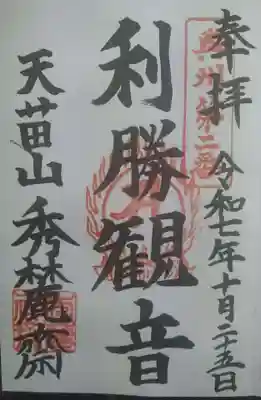 奉拝 令和七年十月二十五日
奥州第二番
利勝観音
天苗山 秀麓齋